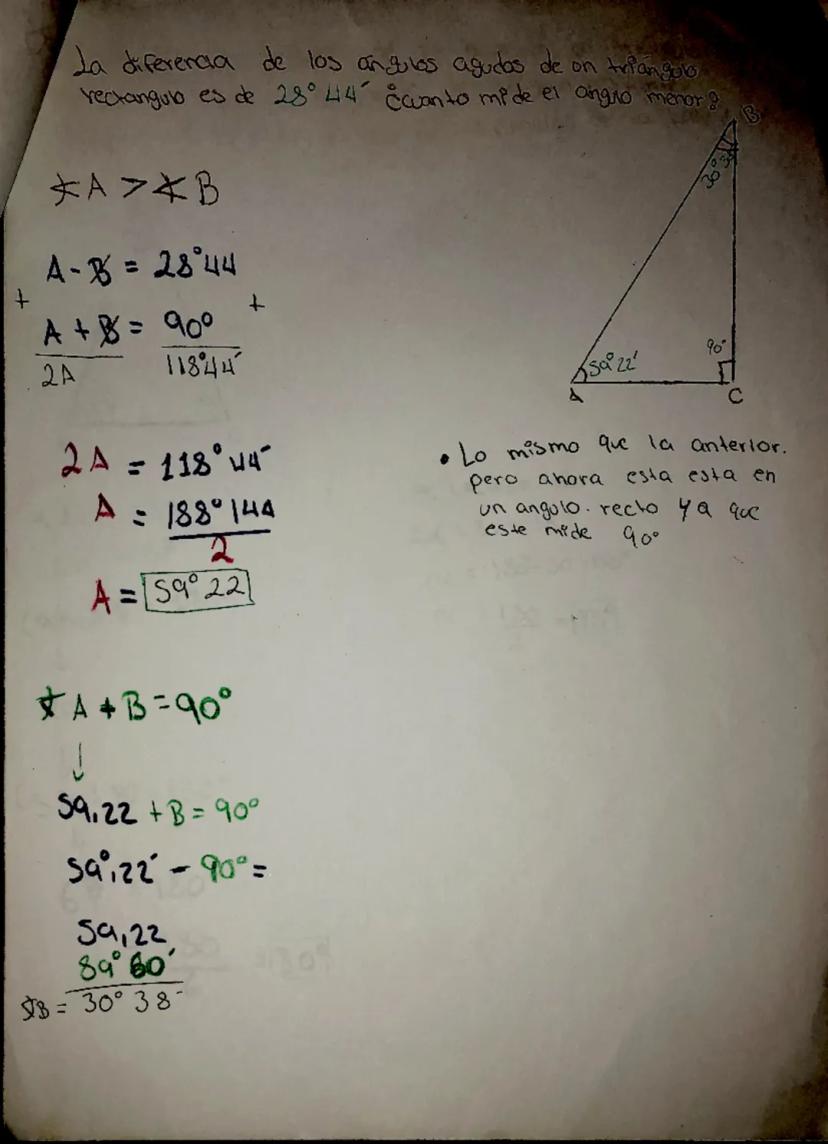 La diferencia de los angulos agudos de un triángulo
rectangulo es de 28° 44´ ¿cuanto mide el angulo menor?
∢A > ∢B
A - B = 28°44
+ +
A + B = 90°
2A 118°44´
2A = 118° 44´
A = 188° 144
2
A = 59° 22
∢ A + B = 90°
↓
59,22 + B = 90°
59°,22´ - 90° =
59,22
89° 60´
∢B = 30° 38´
B
30° 38
59° 22'
90°
A
C
• Lo mismo que la anterior.
pero ahora esta esta en
un angulo. recto ya que
este mide 90°